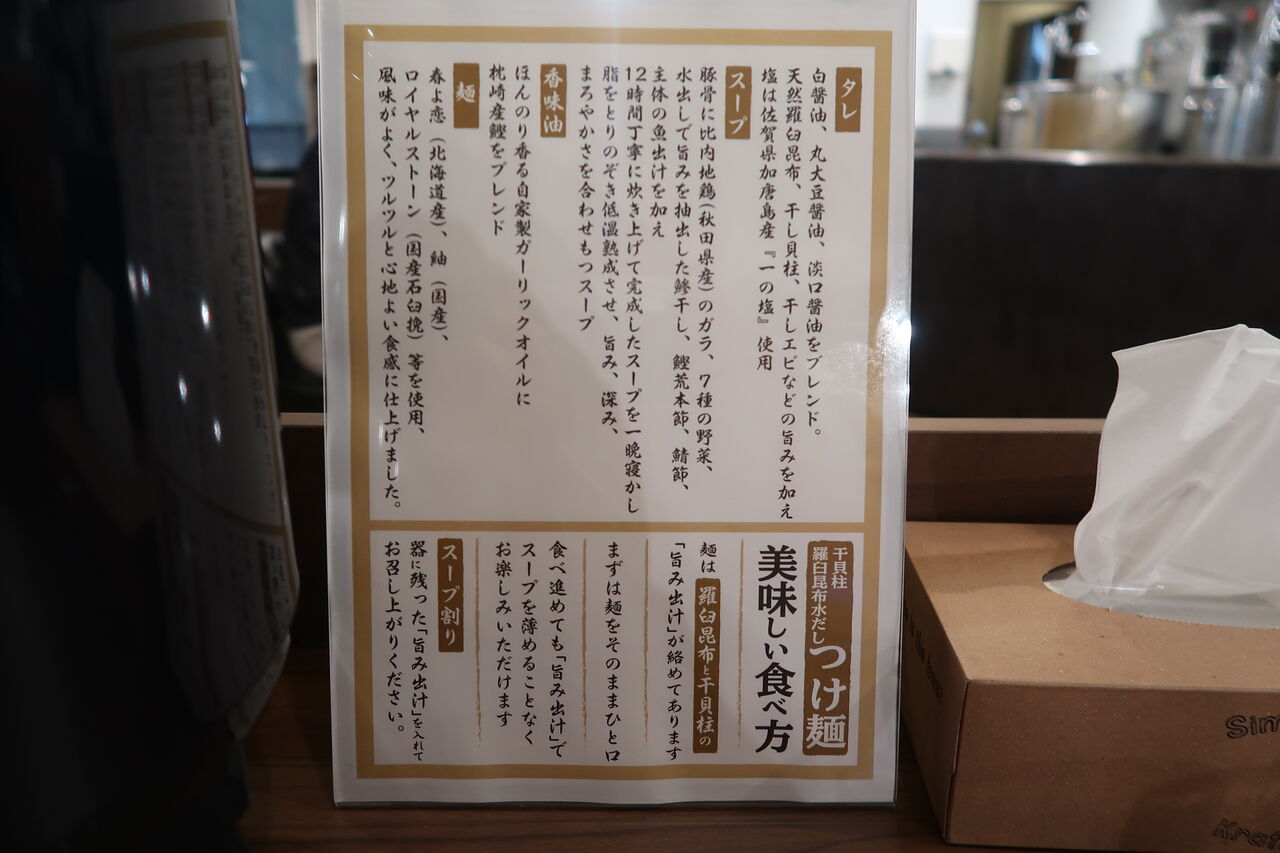 タレ
白醤油、丸大豆醤油、淡口醤油をブレンド。
天然羅臼昆布、干し貝柱、干しエビなどの旨みを加え
塩は佐賀県加唐島産『一の塩』使用
スープ
豚骨に比内地鶏(秋田県産)のガラ、7種の野菜、
水出しで旨みを抽出した鯵干し、鰹荒本節、鯖節、
主体の魚出汁を加え
12時間丁寧に炊き上げて完成したスープを一晩寝かし
脂をとりのぞき低温熟成させ、旨み、深み、
まろやかさを合わせもつスープ
香味油
ほんのり香る自家製ガーリックオイルに
枕崎産鰹をブレンド
麺
春よ恋(北海道産)、紬(国産)、
ロイヤルストーン(国産石臼挽)等を使用、
風味がよく、ツルツルと心地よい食感に仕上げました。
干貝柱
羅臼昆布水だし
つけ麺
美味しい食べ方
麺は羅臼昆布と干貝柱の
「旨み出汁」が絡めてあります
まずは麺をそのままひと口
食べ進めても「旨み出汁」で
スープを薄めることなく
お楽しみいただけます
スープ割り
器に残った「旨み出汁」を入れて
お召し上がりください。
Sim
Kraf